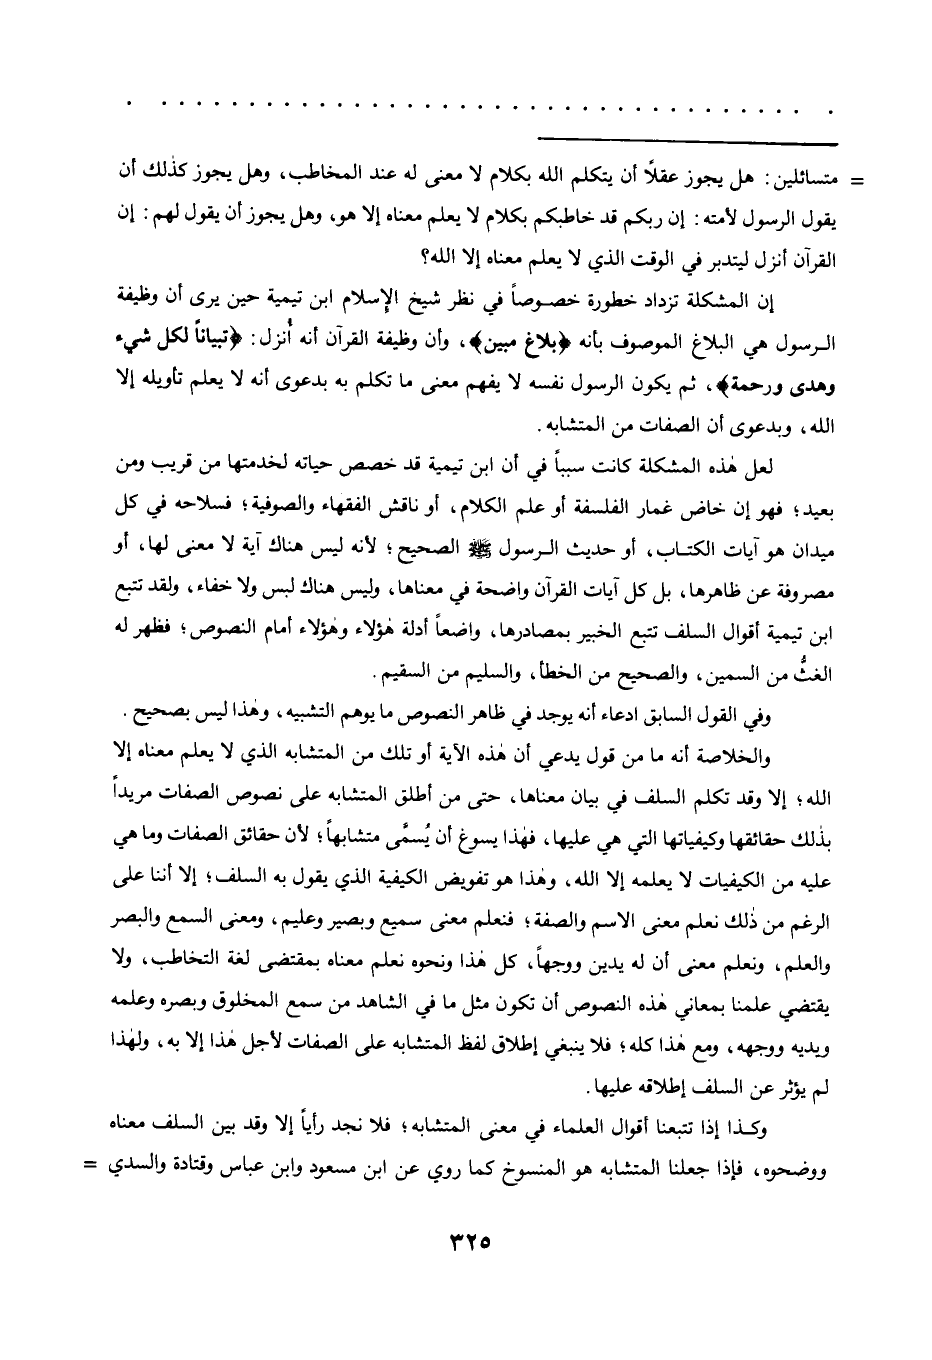 . . . . . . . . . . . . . . . . . . . . . . . . . . . . . . .
= متسائلين: هل يجوز عقلاً أن يتكلم الله بكلام لا معنى له عند المخاطب، وهل يجوز كذٰلك أن
يقول الرسول لأمته: إن ربكم قد خاطبكم بكلام لا يعلم معناه إلا هو، وهل يجوز أن يقول لهم: إن
القرآن أنزل ليتدبر في الوقت الذي لا يعلم معناه إلا الله؟
إن المشكلة تزداد خطورة خصوصاً في نظر شيخ الإسلام ابن تيمية حين يرى أن وظيفة
الرسول هي البلاغ الموصوف بأنه ﴿بلاغ مبين﴾، وأن وظيفة القرآن أنه أُنزل: ﴿تبياناً لكل شيء
وهدى ورحمة﴾، ثم يكون الرسول نفسه لا يفهم معنى ما تكلم به بدعوى أنه لا يعلم تأويله إلا
الله، وبدعوى أن الصفات من المتشابه.
لعل هٰذه المشكلة كانت سبباً في أن ابن تيمية قد خصص حياته لخدمتها من قريب ومن
بعيد؛ فهو إن خاض غمار الفلسفة أو علم الكلام، أو ناقش الفقهاء والصوفية؛ فسلاحه في كل
ميدان هو آيات الكتاب، أو حديث الرسول ﷺ الصحيح؛ لأنه ليس هناك آية لا معنى لها، أو
مصروفة عن ظاهرها، بل كل آيات القرآن واضحة في معناها، وليس هناك لبس ولا خفاء، ولقد تتبع
ابن تيمية أقوال السلف تتبع الخبير بمصادرها، واضعاً أدلة هٰؤلاء وهٰؤلاء أمام النصوص؛ فظهر له
الغثُّ من السمين، والصحيح من الخطأ، والسليم من السقيم.
وفي القول السابق ادعاء أنه يوجد في ظاهر النصوص ما يوهم التشبيه، وهٰذا ليس بصحيح.
والخلاصة أنه ما من قول يدعي أن هٰذه الآية أو تلك من المتشابه الذي لا يعلم معناه إلا
الله؛ إلا وقد تكلم السلف في بيان معناها، حتى من أطلق المتشابه على نصوص الصفات مريداً
بذٰلك حقائقها وكيفياتها التي هي عليها، فهٰذا يسوغ أن يُسمَّى متشابهاً؛ لأن حقائق الصفات وما هي
عليه من الكيفيات لا يعلمه إلا الله، وهٰذا هو تفويض الكيفية الذي يقول به السلف؛ إلا أننا على
الرغم من ذٰلك نعلم معنى الاسم والصفة؛ فنعلم معنى سميع وبصير وعليم، ومعنى السمع والبصر
والعلم، ونعلم معنى أن له يدين ووجهاً، كل هٰذا ونحوه نعلم معناه بمقتضى لغة التخاطب، ولا
يقتضي علمنا بمعاني هٰذه النصوص أن تكون مثل ما في الشاهد من سمع المخلوق وبصره وعلمه
ويديه ووجهه، ومع هٰذا كله؛ فلا ينبغي إطلاق لفظ المتشابه على الصفات لأجل هٰذا إلا به، ولهٰذا
لم يؤثر عن السلف إطلاقه عليها.
وكذا إذا تتبعنا أقوال العلماء في معنى المتشابه؛ فلا نجد رأياً إلا وقد بين السلف معناه
ووضحوه، فإذا جعلنا المتشابه هو المنسوخ كما روي عن ابن مسعود وابن عباس وقتادة والسدي =
٣٢٥